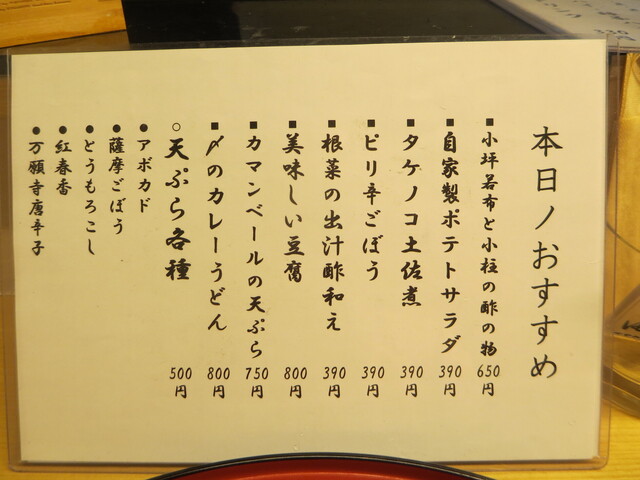 本日ノおすすめ
■小坪若布と小柱の酢の物 650円
■自家製ポテトサラダ 390円
■タケノコ土佐煮 390円
■ピリ辛ごぼう 390円
■根菜の出汁酢和え 390円
■美味しい豆腐 800円
■カマンベールの天ぷら 750円
■〆のカレーうどん 800円
○天ぷら各種 500円
●アボカド
●薩摩ごぼう
●とうもろこし
●紅春香
●万願寺唐辛子